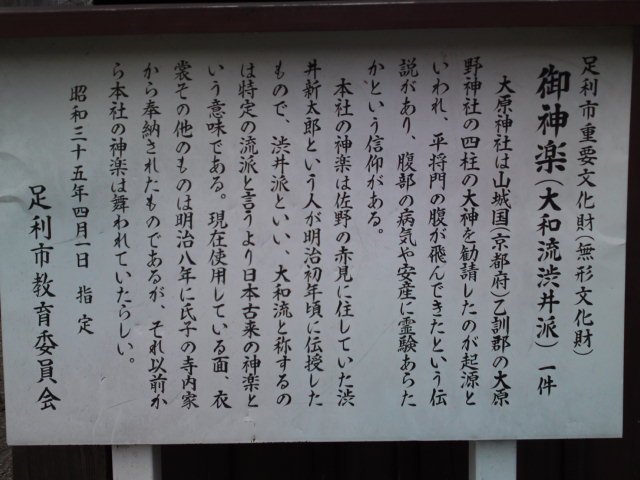 足利市重要文化財(無形文化財)
御神楽(大和流渋井派)一件
大原神社は山城国(京都府)乙訓郡の大原
野神社の四柱の大神を勧請したのが起源と
いわれ、平将門の腹が飛んできたという伝
説があり、腹部の病気や安産に霊験あらた
かという信仰がある。
本社の神楽は佐野の赤見に住していた渋
井新太郎という人が明治初年頃に伝授した
もので、渋井派といい、大和流と称するの
は特定の流派と言うより日本古来の神楽と
いう意味である。現在使用している面、衣
裳その他のものは明治八年に氏子の寺内家
から奉納されたものであるが、それ以前か
ら本社の神楽は舞われていたらしい。
昭和三十五年四月一日 指定
足利市教育委員会